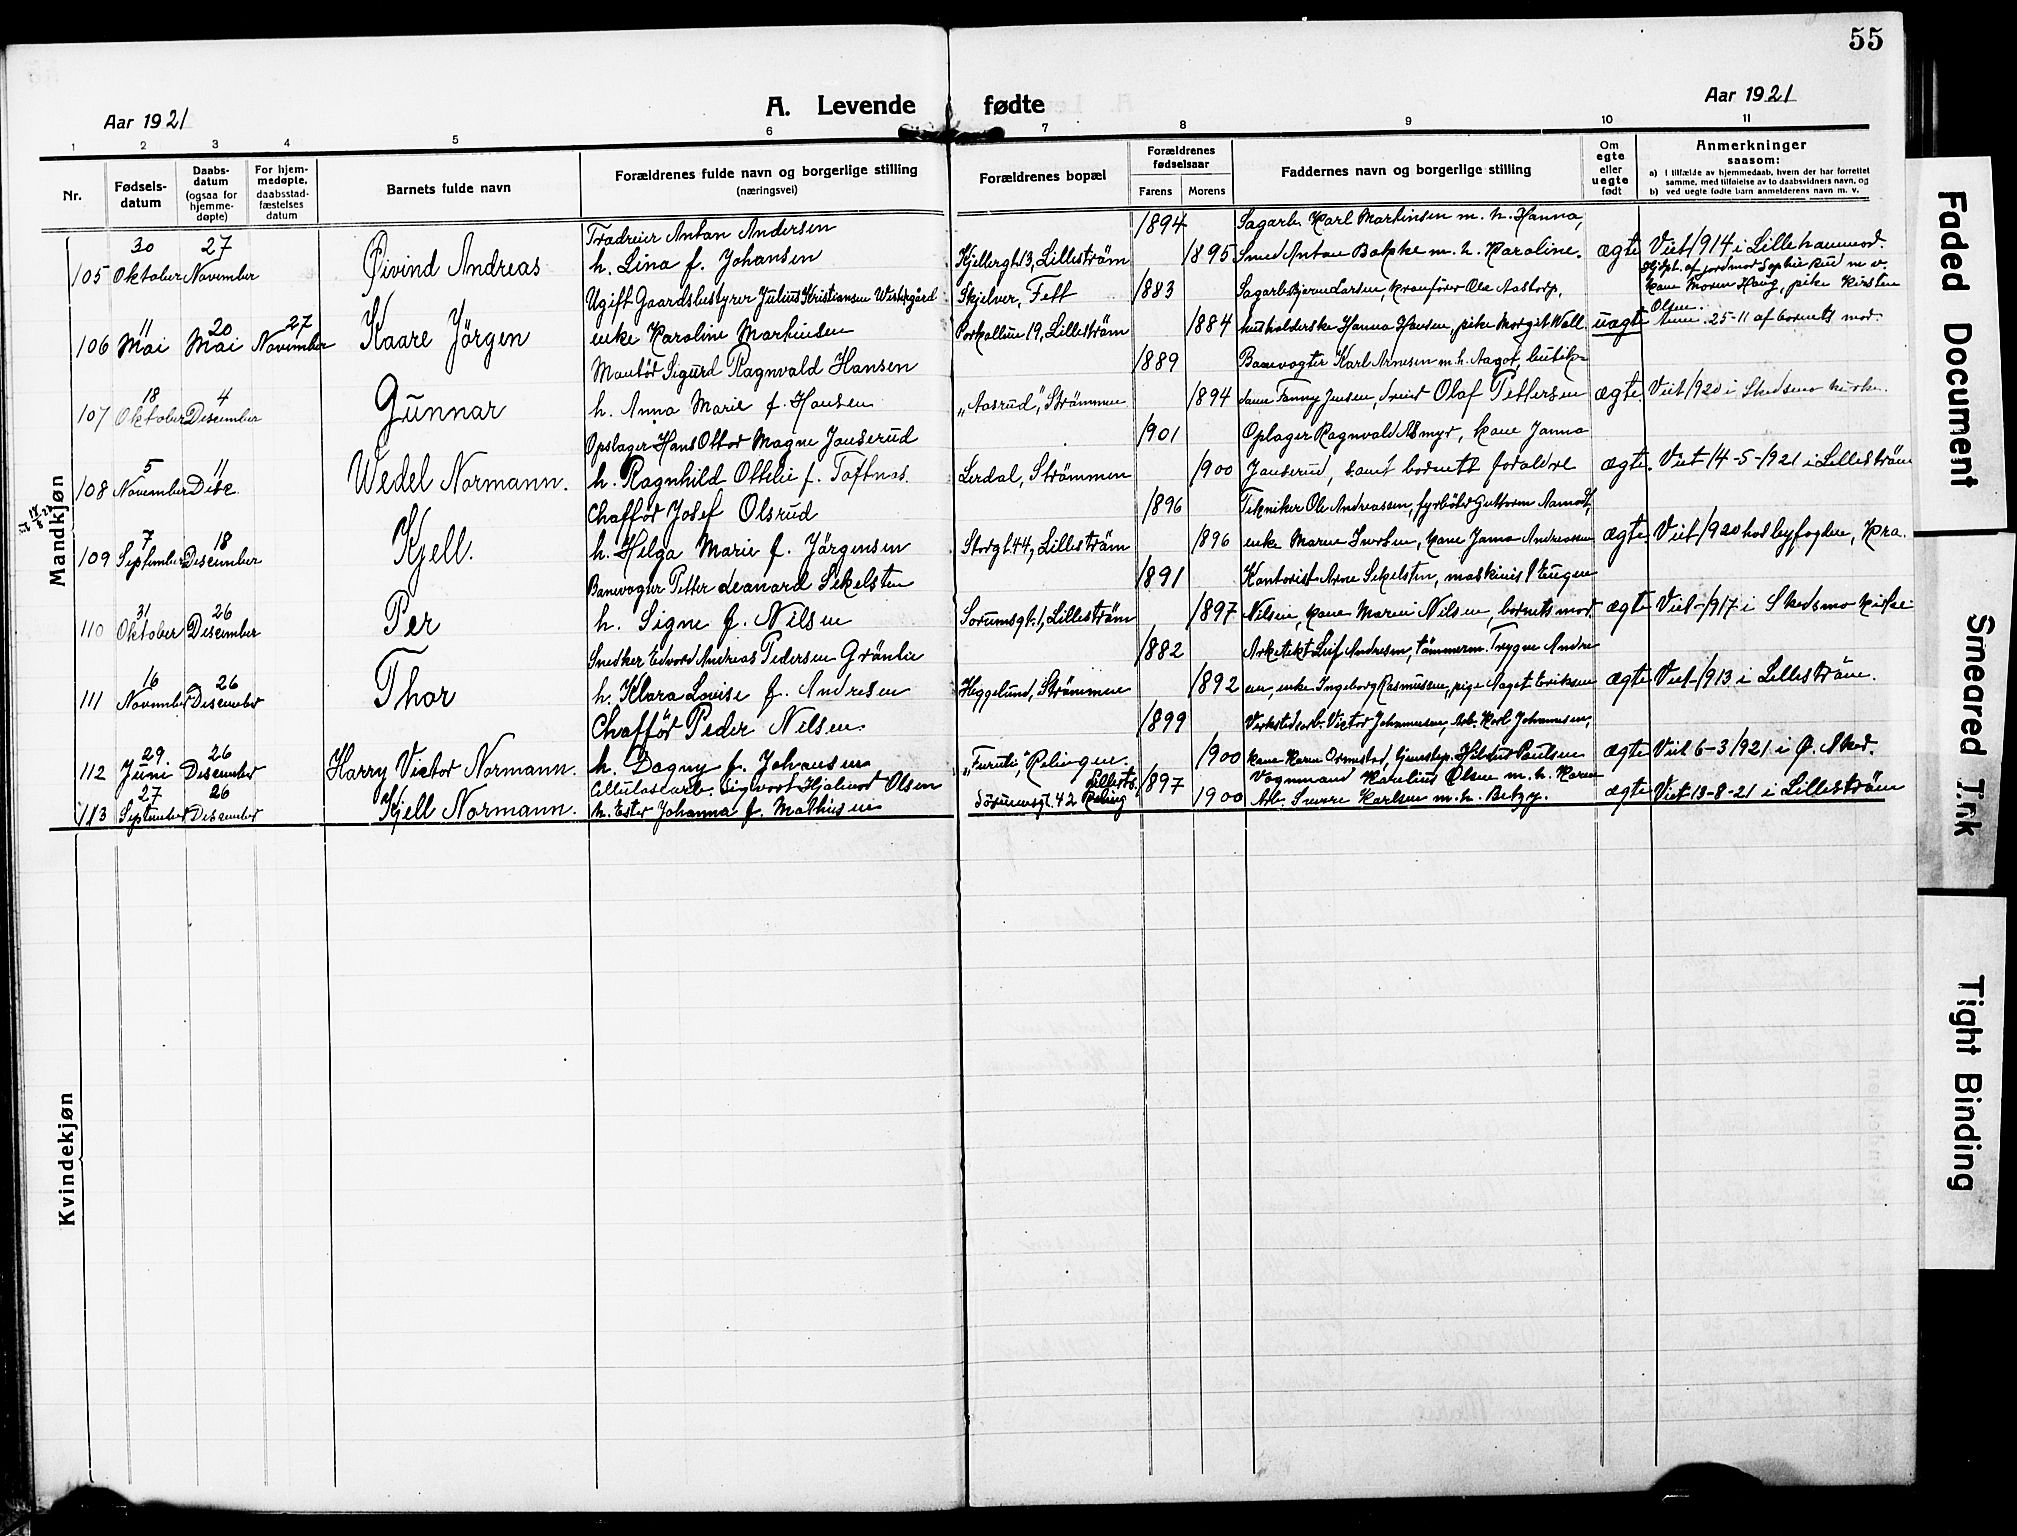 55
A. Levende fødte
Aar 1921
Aar 1921
1 2 3 4 5 6 7 8 9 10 11
Nr.
Fødsels-
datum
Daabs-
datum
(ogsaa for
hjemme-
døpte)
For hjem-
medøpte,
daabsstad-
fæstelses
datum
Barnets fulde navn
Forældrenes fulde navn og borgerlige stilling
(næringsvei)
Forældrenes bopæl
Forældrenes
fødselsaar
Farens Morens
Faddernes navn og borgerlige stilling
Om
egte
eller
uegte
født
Anmerkninger
saasom:
a) I tilfælde av hjemmedaab, hvem der har forrettet
samme, med tilføielse av to daabsvidners navn, og
b) ved uegte fødte barn anmelderens navn m. v.
Mandkjøn
30 27 Trædreier Anton Andersen 1894 Sagarb. Karl Martinsen m. h. Hanna,
105 Oktober November Øivind Andreas h. Lina f. Johansen Kjellergt. 13, Lilleström 1895 Smed Anton m. h. Karoline. ægte Viet 1914 i Lillehammer.
Hjdpt. af jordmor Sophie Rud m v.
Ugift Gaardsbestyrer Julius Kristiansen Skjelver, Fett 1883 Sagarb. Bjarne Larsen, kranfører Ole Aastorp, kone Maren Haug, pike Kirsten
Olsen.
11 20 27
106 Mai Mai November Kaare Jörgen enke Karoline Martinsen 19, Lilleström 1884 husholderske Hanna Hansen, pike Margit Wall. uægte Anm. 25-11 af barnets mor
18 4 Montör Sigurd Ragnvald Hansen 1889 Banevogter Karl Arnesen m. h. Aagot,
107 Oktober Desember Gunnar h. Anna Marie f. Hansen „Aasrud“, Strömmen 1894 dame Fanny Jensen, dreier Olaf Pettersen ægte. Viet 1920 i Skedsmo kirke.
Opslager Hans Ottar Magne Janserud 1901 Oplager Ragnvald Asmyr, kone Janna
5 11
108 November Dese. Wedel Normann. h. Ragnhild Ottilie f. Toftnes Lerdal, Strömmen 1900 Janserud, samt barnets foraldre ægte. Viet 14-5-1921 i Lilleström
Chafför Josef Olsrud 1896 Tekniker Ole Andreassen, fyrböter Guttorm Aamot,
7 18
109 September Desember Kjell. h. Helga Marie f. Jörgensen Storgt. 44, Lilleström 1896 enke Maren Iversen, kone Janna Andreassen ægte. Viet 1920 hos byfogden, Kra.
Banevogter Petter Leonard Sekelsten 1891 Kontorist Arne Sekelsten, maskinist Eugen
31 26
110 Oktober Desember Per h. Signe f. Nilsen Sorumsgt. 1, Lilleström 1897 Nilsen, kone Maren Nilsen, barnets mor. ægte Viet 1917 i Skedsmo kirke
Snedker Edvard Andreas Pedersen Grönlie 1882 Arkitekt Leif Andresen, tömmerm. Trygve Andre
16 26
111 November Desember Thor h. Klara Louise f. Andresen Heggelund, Strömmen 1892 sen, enke Ingeborg Rasmussen, pige Aagot Eriksen ægte Viet 1913 i Lilleström.
Chafför Peder Nilsen. 1899 Verkstedsarb. Victor Johannesen, Arb. Karl Johannesen,
29. 26
112 Juni Desember Harry Victor Normann. h. Dagny f. Johansen „Furuli“, Relingen. 1900 kone Karen Ormstad, Hilda Paulsen ægte Viet 6-3 1921 i Ø.
27 26 Cellulosearb. Sigvart Hjalmar Olsen 1897 Vognmand Karelius Olsen m. h. Karen
113 September Desember Kjell Normann. h. Ester Johanna f. Mathisen Sörumsgt. 42 Lillestr. Reling 1900 Arb. Sverre Karlsen m. h. Betzy. ægte Viet 13-8-21 i Lilleström
Kvindekjøn
Faded Document
Smeared Ink
Tight Binding